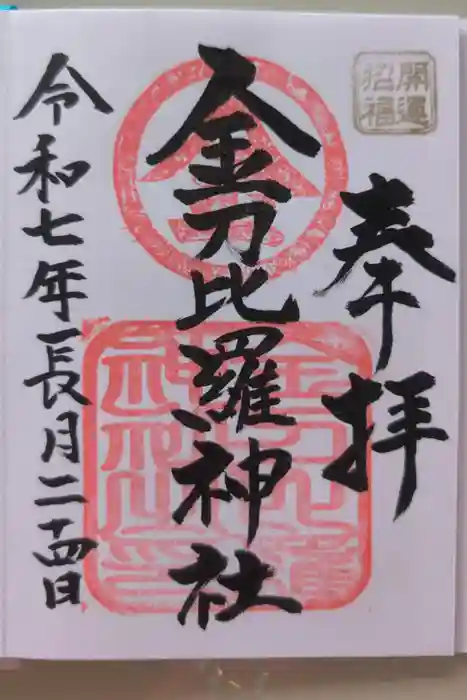 開運
招福
奉拝
金刀比羅神社
令和七年長月二十四日